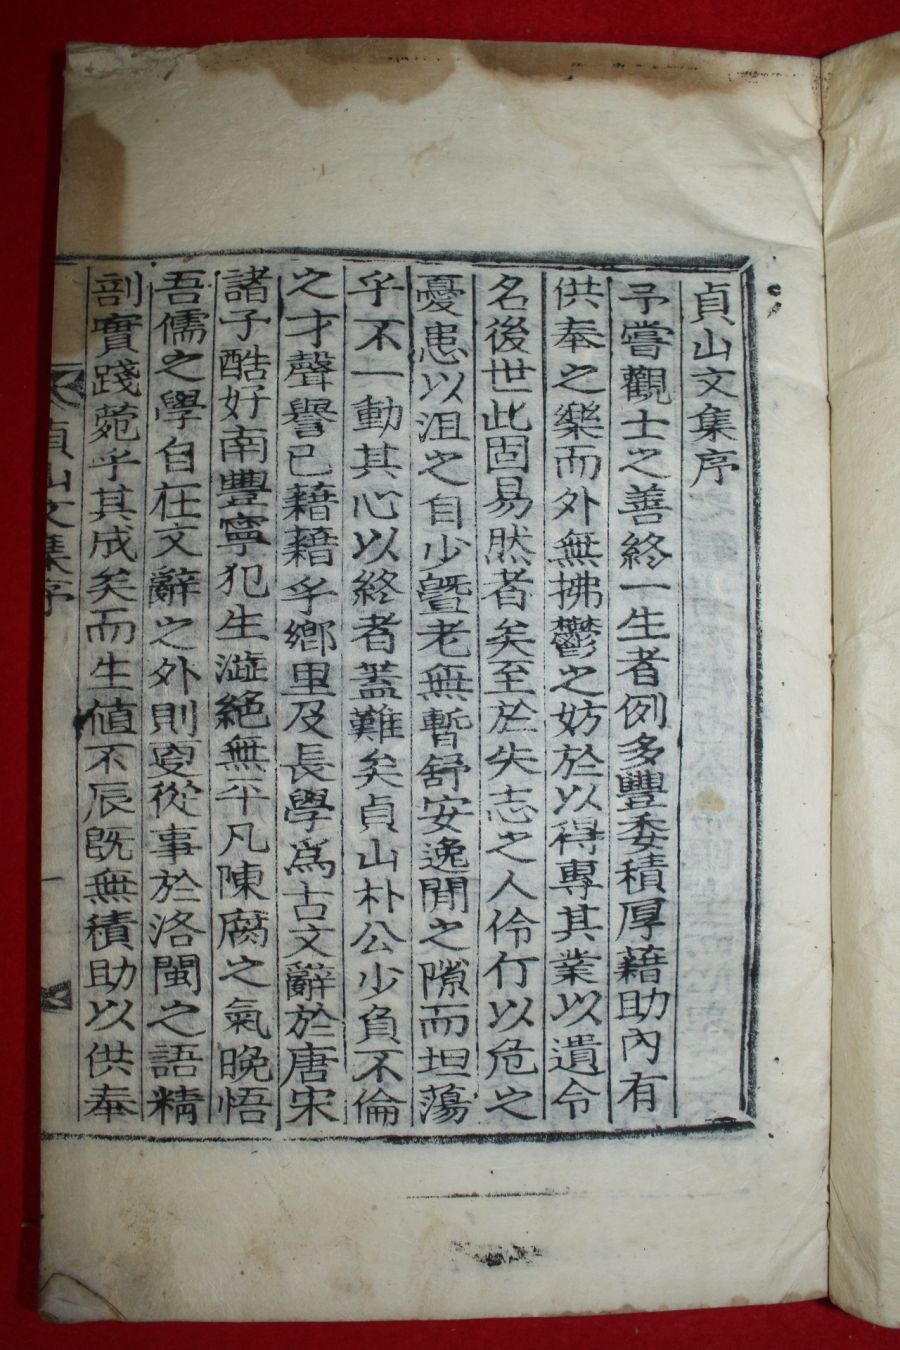 貞山文集序
予嘗觀士之善終一生者例多豐委積厚藉助內有
供奉之樂而外無拂鬱之妨於以得專其業以遺令
名後世此固易然者矣至於失志之人伶仃以危之
憂患以沮之自少曁老無暫舒安逸閒之隙而坦蕩
乎不一動其心以終者蓋難矣貞山朴公少負不倫
之才聲譽已藉藉乎鄉里及長學爲古文辭於唐宋
諸子酷好南豐寧犯生澁絶無半凡陳腐之氣晩悟
吾儒之學自在文辭之外則更從事於洛閩之語精
剖實踐菀乎其成矣而生値不辰旣無積助以供奉
貞山文集序
一